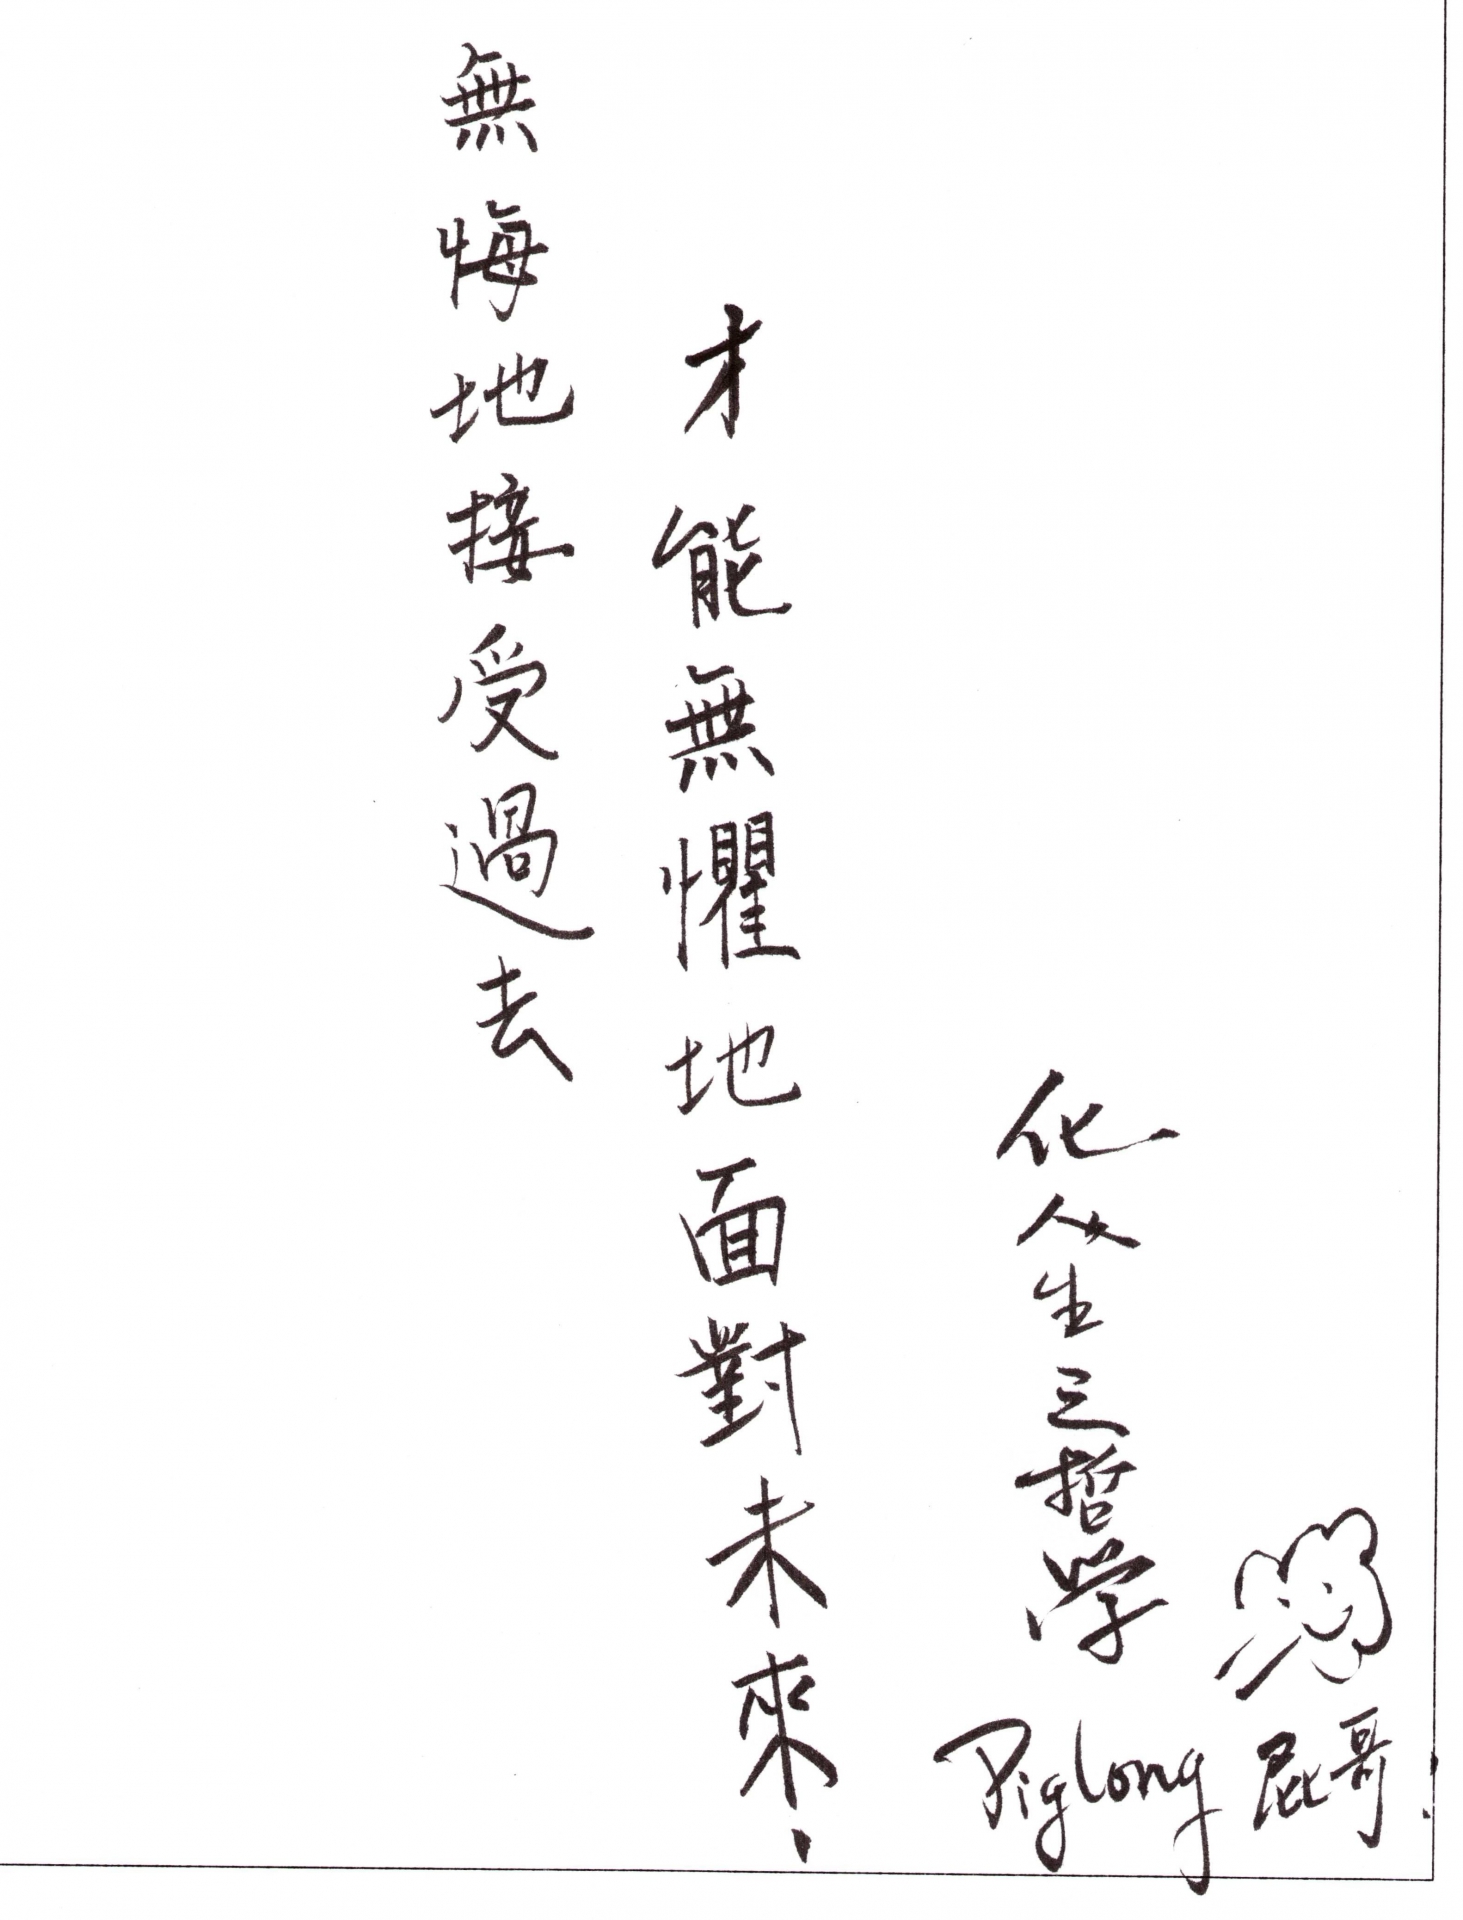 無悔地接受過去
才能無懼地面對未來！
化人生之哲学
Piglong 屁哥